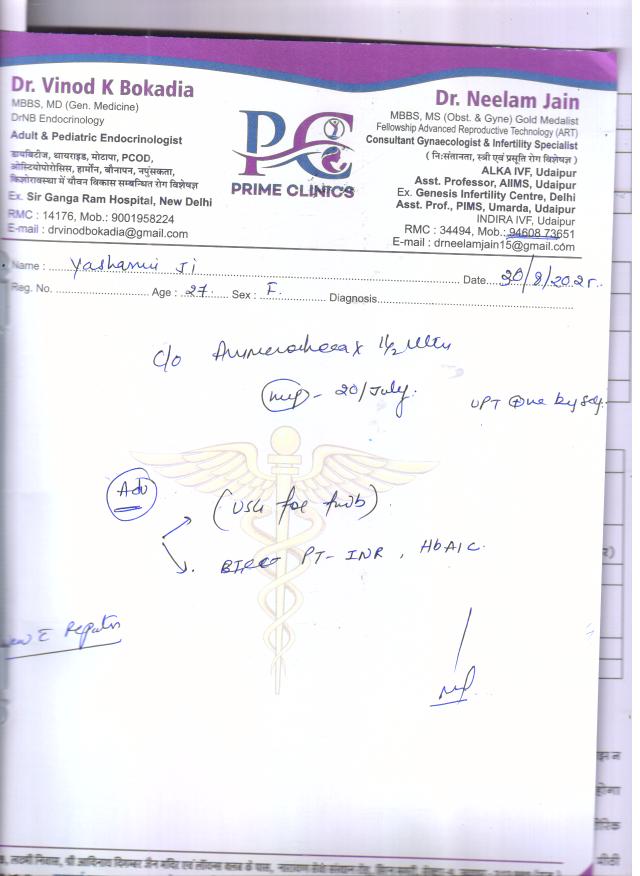 Dr. Vinod K Bokadia
MBBS, MD (Gen. Medicine)
DrNB Endocrinology
Adult & Pediatric Endocrinologist
डायबिटीज, थायराइड, मोटापा, PCOD,
ऑस्टियोपोरोसिस, हार्मोन, बौनापन, नपुंसकता,
किशोरावस्था में यौवन विकास सम्बन्धित रोग विशेषज्ञ
Ex. Sir Ganga Ram Hospital, New Delhi
RMC : 14176, Mob.: 9001958224
E-mail : drvinodbokadia@gmail.com
PC
PRIME CLINICS
Dr. Neelam Jain
MBBS, MS (Obst. & Gyne) Gold Medalist
Fellowship Advanced Reproductive Technology (ART)
Consultant Gynaecologist & Infertility Specialist
( नि:संतानता, स्त्री एवं प्रसूति रोग विशेषज्ञ )
ALKA IVF, Udaipur
Asst. Professor, AIIMS, Udaipur
Ex. Genesis Infertility Centre, Delhi
Asst. Prof., PIMS, Umarda, Udaipur
INDIRA IVF, Udaipur
RMC : 34494, Mob.: 94608 73651
E-mail : drneelamjain15@gmail.com
Name : Ji Date 20/8/2025
Reg. No. Age : 27 Sex : F. Diagnosis
c/o 1½
- 20/July. UPT +ve by self
Adv
(USG for )
PT-INR, HbA1C.